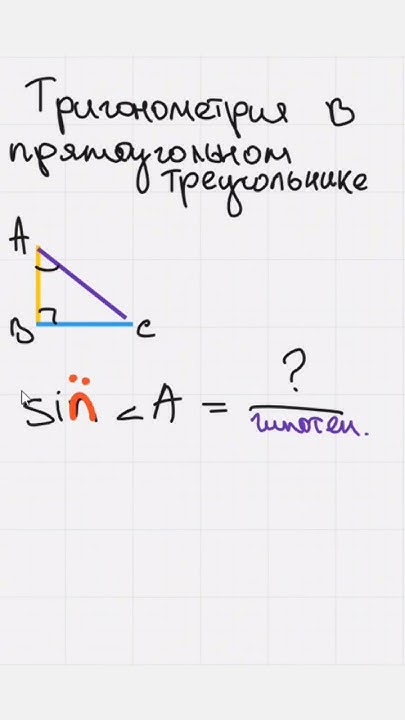 Тригонометрия в
прямоугольном
треугольнике
A
B
C
?
sin̈ ∠A = 
гипотен.